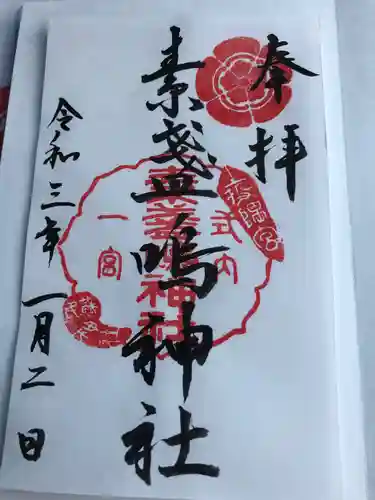 奉拝
素盞嗚神社
令和三年一月二日
式内
一宮
素盞嗚神社
備後國
蘇民将来